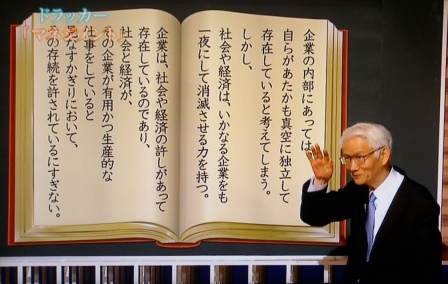 ドラッカー
『マネジメント』
企業の内部にあっては、
自らがあたかも真空に独立して
存在していると考えてしまう。
しかし、
社会や経済は、いかなる企業をも
一夜にして消滅させる力を持つ。
企業は、社会や経済の許しがあって
存在しているのであり、
社会と経済が、
その企業が有用かつ生産的な
仕事をしていると
見なすかぎりにおいて、
その存続を許されているにすぎない。